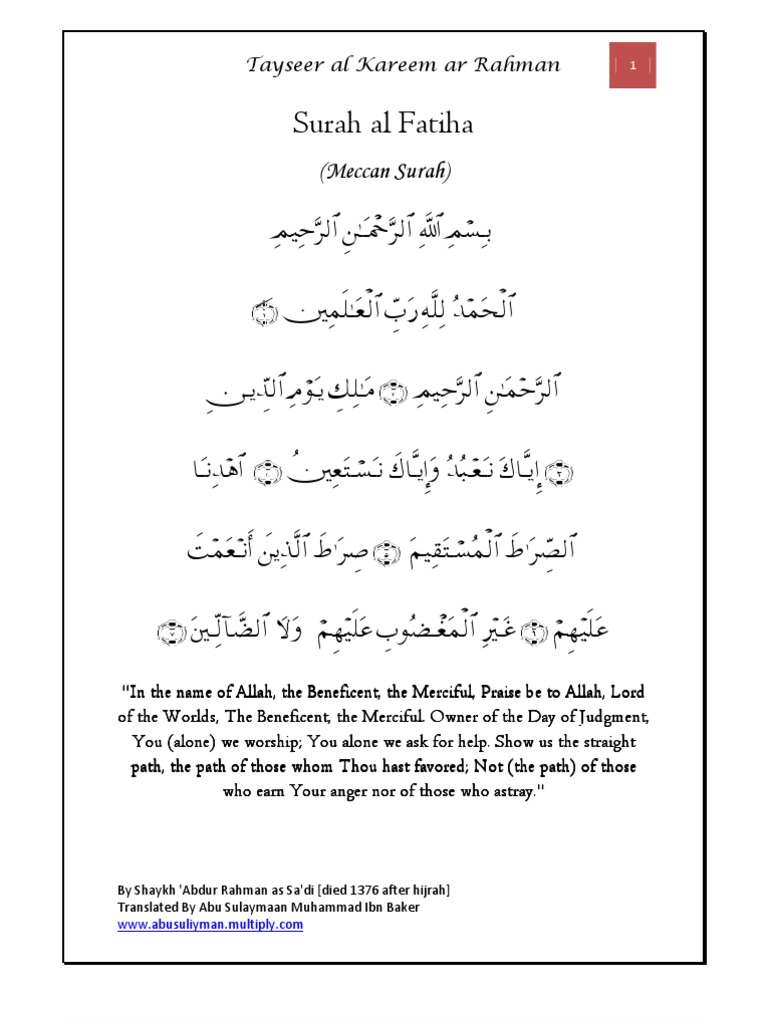 Tayseer al Kareem ar Rahman
1
Surah al Fatiha
(Meccan Surah)
بِسْمِ ٱللَّهِ ٱلرَّحْمَـٰنِ ٱلرَّحِيمِ
ٱلْحَمْدُ لِلَّهِ رَبِّ ٱلْعَـٰلَمِين ١
ٱلرَّحْمَـٰنِ ٱلرَّحِيمِ ٢ مَـٰلِكِ يَوْمِ ٱلدِّينِ
٣ إِيَّاكَ نَعْبُدُ وَإِيَّاكَ نَسْتَعِينُ ٤ ٱهْدِنَا
ٱلصِّرَٰطَ ٱلْمُسْتَقِيمَ ٥ صِرَٰطَ ٱلَّذِينَ أَنْعَمْتَ
عَلَيْهِمْ ٦ غَيْرِ ٱلْمَغْضُوبِ عَلَيْهِمْ وَلَا ٱلضَّآلِّينَ ٧
"In the name of Allah, the Beneficent, the Merciful, Praise be to Allah, Lord
of the Worlds, The Beneficent, the Merciful. Owner of the Day of Judgment,
You (alone) we worship; You alone we ask for help. Show us the straight
path, the path of those whom Thou hast favored; Not (the path) of those
who earn Your anger nor of those who astray."
By Shaykh 'Abdur Rahman as Sa'di [died 1376 after hijrah]
Translated By Abu Sulaymaan Muhammad Ibn Baker
www.abusuliyman.multiply.com